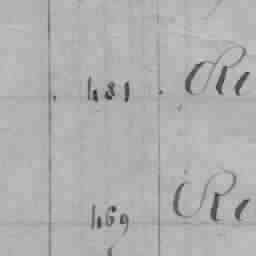 481 Ri
469 Ri